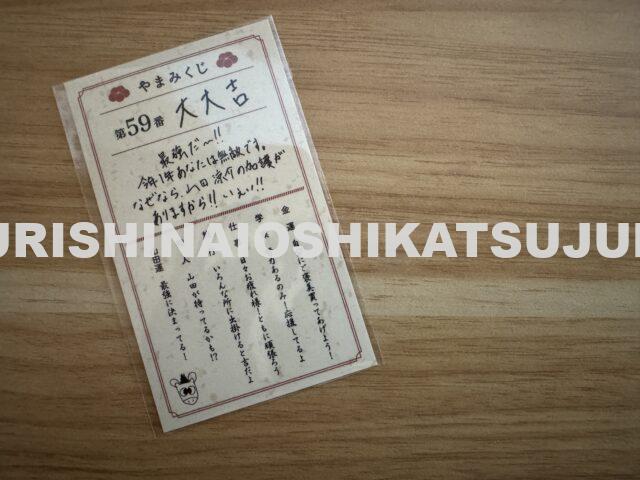 やまみくじ
第59番 大大吉
最強だ〜!!
今年1年あなたは無敵です。
なぜなら、山田涼介の加護が
ありますから!! いぇい!!
金運
にご褒美買ってあげよう!
学
あるのみ!応援してるよ
仕事 日々お疲れ様!ともに頑張ろう
いろんな所に出掛けると吉だよ
人 山田が持ってるかも!?
田運 最強に決まってる!
URISHINAIOSHIKATSUJU